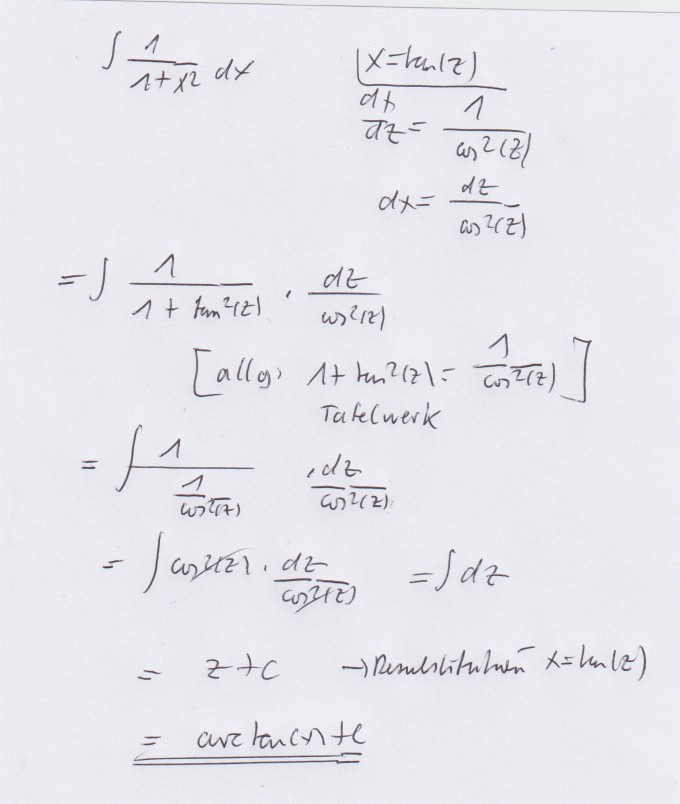 ∫ 1/(1+x²) dx    x=tan(z)
dx/dz = 1/cos²(z)
dx = dz/cos²(z)
= ∫ 1/(1+tan²(z)) · dz/cos²(z)
[allg. 1+tan²(z) = 1/cos²(z)]
Tafelwerk
= ∫ 1/(1/cos²(z)) · dz/cos²(z)
= ∫ cos²(z) · dz/cos²(z) = ∫ dz
= z+c → Resubstitution x=tan(z)
= arctan(x)+c